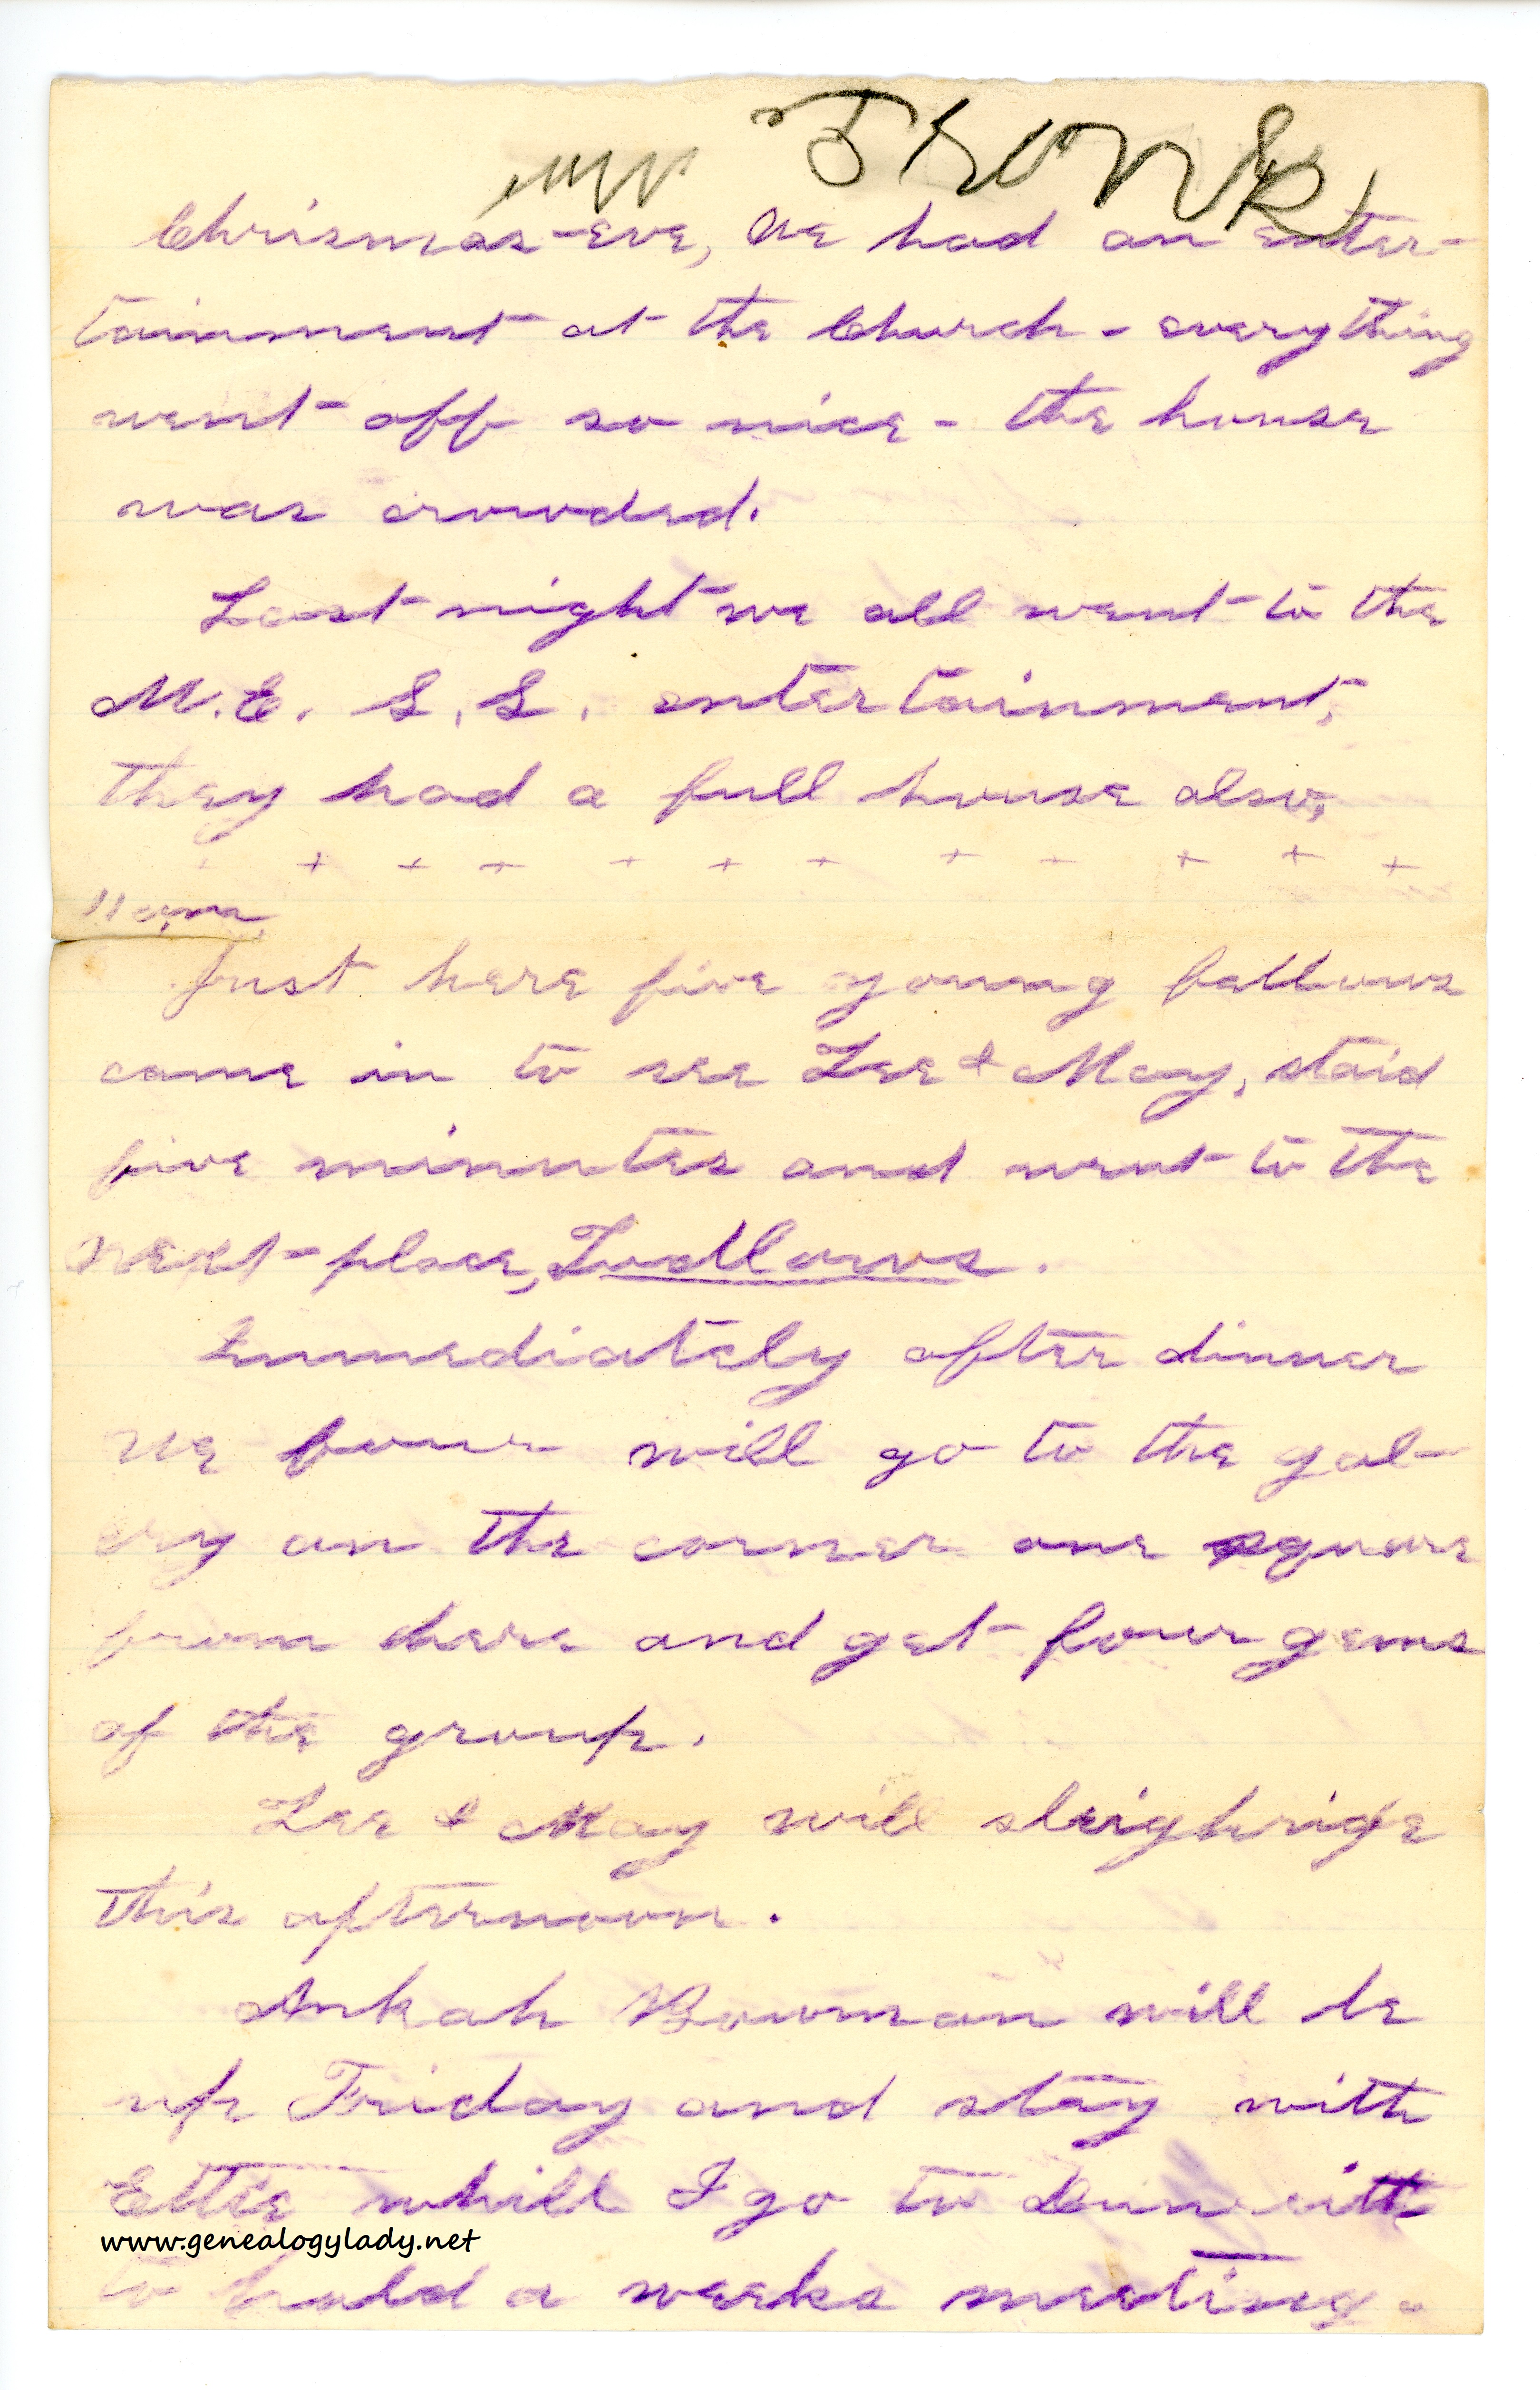 Chrismas-eve, We had an enter-
tainment at the Church - everything
went off so nice - the house
was crowded.
Last night we all went to the
M.E. S.S. entertainment,
they had a full house also,
+ + + + + + + + + + +
11 a.m.
Just here five young fellows
came in to see Lee & May, staid
five minutes and went to the
next place, Ludlows.
Immediately after dinner
we four will go to the gal-
ery on the corner one square
from here and get four gems
of the group.
Lee & May will sleighride
this afternoon.
Ankah Bowman will be
up Friday and stay with
Ettie whill I go to
www.genealogylady.net
to hold a weeks meeting.